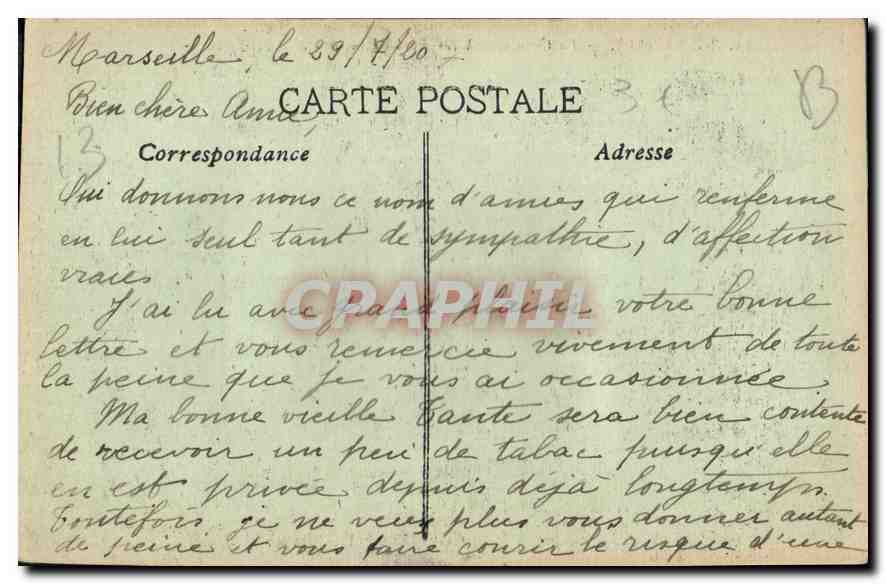 Marseille, le 29/7/20
Bien chère Amie,
CARTE POSTALE
Correspondance
Adresse
13
Oui donnons nous ce nom d'amies qui renferme
en lui seul tant de sympathie, d'affection
vraies.
CPRAPHIL
J'ai lu avec grand plaisir votre bonne
lettre et vous remercie vivement de toute
la peine que je vous ai occasionnée.
Ma bonne vieille Tante sera bien contente
de recevoir un peu de tabac puisqu'elle
en est privée depuis déjà longtemps.
Toutefois je ne veux plus vous donner autant
de peine et vous faire courir le risque d'une